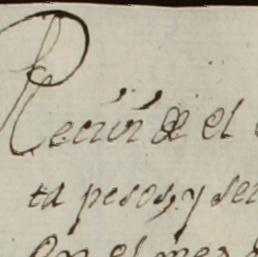 Recivi de el
ta pesos, y se
En el mes